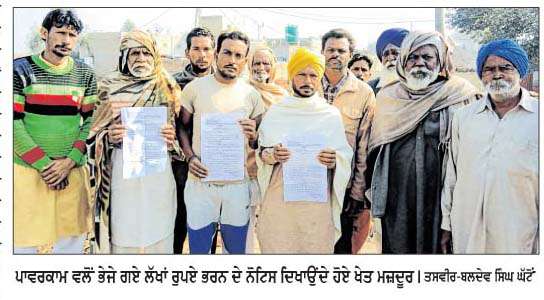 ਪਾਵਰਕਾਮ ਵਲੋਂ ਭੇਜੇ ਗਏ ਲੱਖਾਂ ਰੁਪਏ ਭਰਨ ਦੇ ਨੋਟਿਸ ਦਿਖਾਉਂਦੇ ਹੋਏ ਖੇਤ ਮਜ਼ਦੂਰ। ਤਸਵੀਰ-ਬਲਦੇਵ ਸਿੰਘ ਘੱਟੋਂ